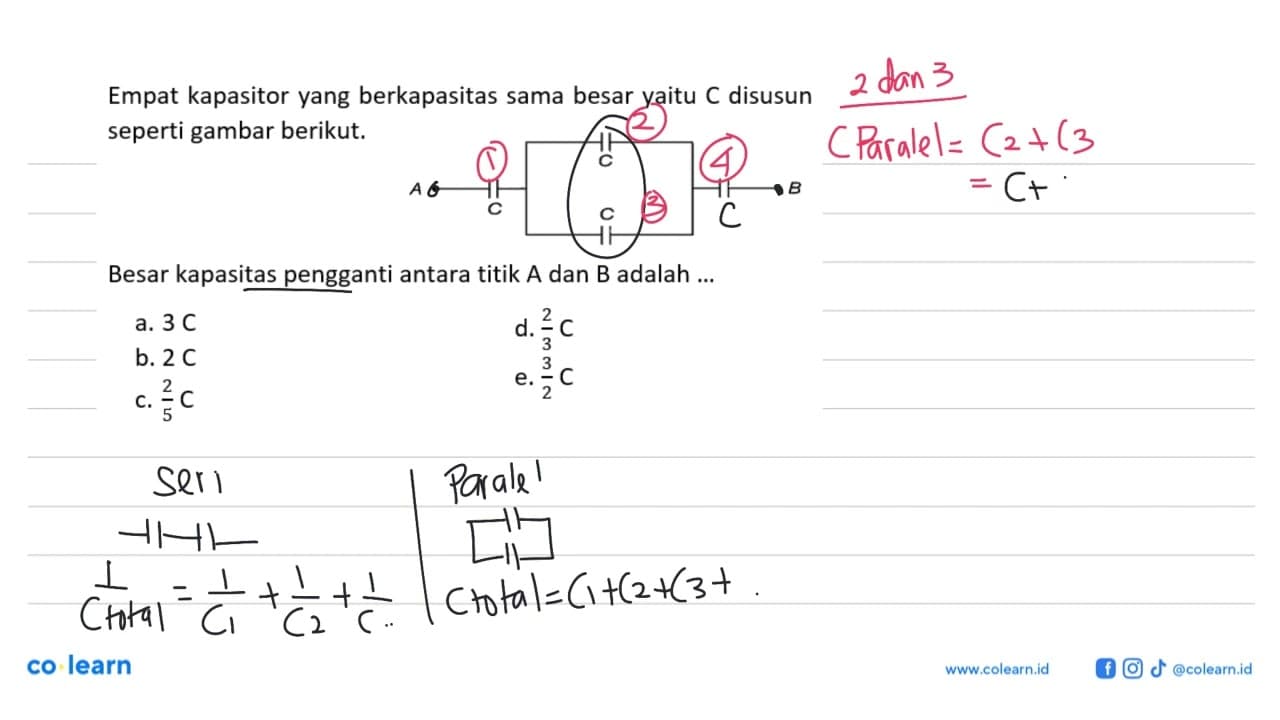 Empat kapasitor yang berkapasitas sama besar yaitu C disusun
seperti gambar berikut.
2 dan 3
C Paralel = C2 + C3
= C +
1
2
3
4
A
C
C
C
C
B
Besar kapasitas pengganti antara titik A dan B adalah ...
a. 3 C
b. 2 C
c. 2/5 C
d. 2/3 C
e. 3/2 C
Seri
1/Ctotal = 1/C1 + 1/C2 + 1/C..
Paralel
Ctotal = C1+C2+C3+ .
co·learn
www.colearn.id
@colearn.id